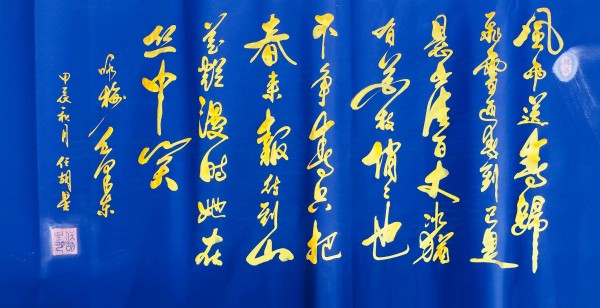 風雨送春歸
飛雪迎春到已是
悬崖百丈冰猶
有花枝俏々也
不争春只把
春来報待到山
花漫時她在
丛中笑
咏梅 毛泽东
甲辰秋月任